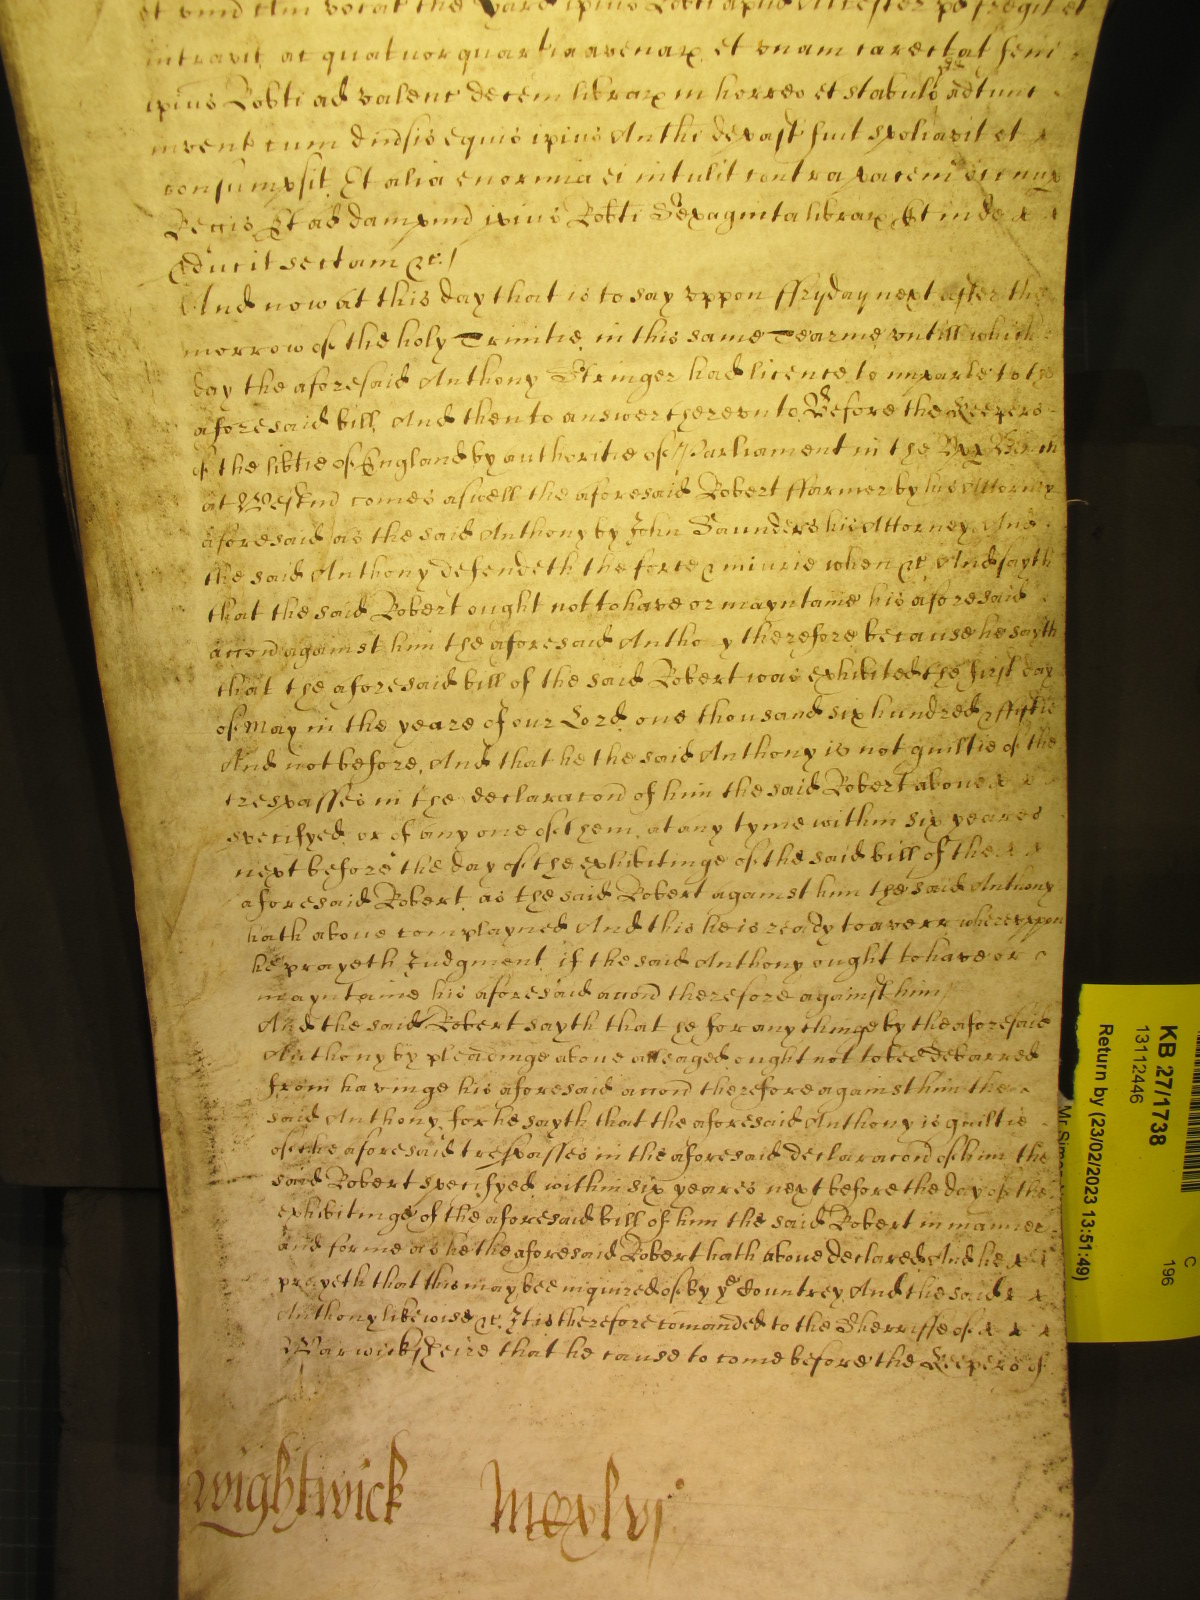 et unu Am vocat the Bare ipius Robti apud Alcester pd fregit et
intravit ac quatuor quarteria avenar et unam carectat feni
ipius Robti ad valenc decem librar in horreo et stabulo pd adtunc
invent cum divsis equis ipius Anthi depast fuit spoliavit et x
consumpsit Et alia enormia ei intulit contra pacem dci nup
Regis Et ad dampnu ipius Robti Sexaginta librar Et inde x x
pducit sectam &c./
And now at this day that is to say uppon ffryday next after the
morrow of the holy Trinitie in this same Tearme untill which
day the aforesaid Anthony Stringer had licence to imparle to the
aforesaid bill, And then to answer thereunto Before the Keepers
of the libtie of England by authoritie of Parliament in the Upp Bench
at Westmd comes aswell the aforesaid Robert ffarmer by his Attorney
aforesaid as the said Anthony by John Saunders his Attorney And
the said Anthony defendeth the force & iniurie when &c And sayth
that the said Robert ought not to have or mayntaine his aforesaid
accon against him the aforesaid Anthony therefore because he sayth
that the aforesaid bill of the said Robert was exhibited the first day
of May in the yeare of our Lord one thousand six hundred & fiftie
And not before, And that he the said Anthony is not guiltie of the
trespasses in the declaracon of him the said Robert above x x x
specifyed or of any one of them at any tyme within six yeares
next before the day of the exhibitinge of the said bill of the x x
aforesaid Robert as the said Robert against him the said Anthony
hath above complayned And this he is ready to averr whereuppon
he prayeth Judgment if the said Anthony ought to have or
mayntaine his aforesaid accon therefore against him
And the said Robert sayth that he for any thinge by the aforesaid
Anthony by pleadinge above alleaged ought not to bee debarred
from havinge his aforesaid accon therefore against him the
said Anthony, for he sayth that the aforesaid Anthony is guiltie
of the aforesaid trespasses in the aforesaid declaracon of him the
said Robert specifyed within six yeares next before the day of the
exhibitinge of the aforesaid bill of him the said Robert in manner
and forme as he the aforesaid Robert hath above declared And he x x
prayeth that this may bee inquired of by ye Countrey And the said x x
Anthony likewise &c. It is therefore comanded to the Sherriffe of x x x
Warwicksheire that he cause to come before the Keepers of
Wightwick Mcxlvj
KB 27/1738
13112446
Return by (23/02/2023 13:51:49)
C
196